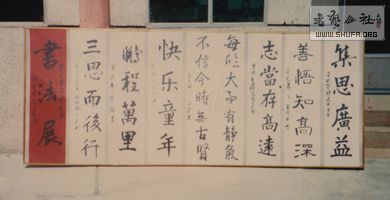 集思廣益
善悟知高深
志當存高遠
每臨大事有靜氣
不信今時無古賢
快乐童年
鵬程萬里
三思而後行
書法展
書藝公社
www.shufa.org